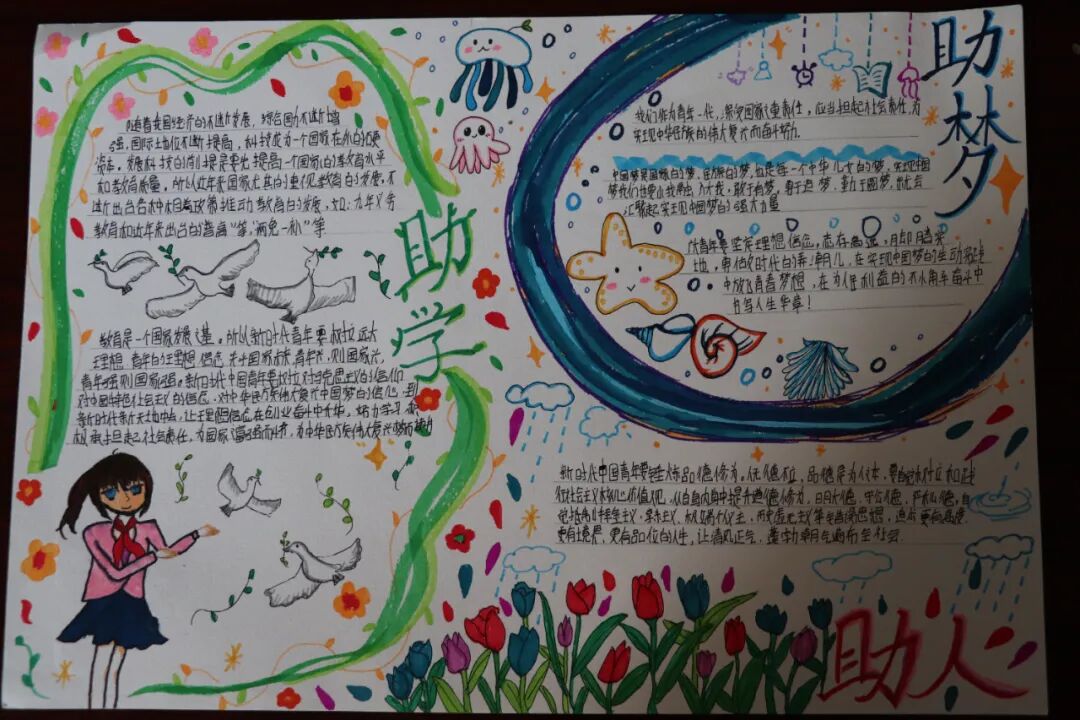 随着我国经济的不断发展，综合国力不断增
强，国际地位不断提高，科技成为一个国家在外的硬
资本。发展科技的前提是要先提高一个国家的教育水平
和教育质量。所以近年来国家尤其的重视教育的发展。不
断出台各种相关政策推动教育的发展，如：九年义务
教育和近年来出台的 "两免一补"等
助学
教育是一个国家发展之基。所以新时代青年要树立远大
理想。青年的理想信念关乎国家未来。青年兴，则国家兴，
青年强则国家强。新时代中国青年要树立对马克思主义的信仰
对中国特色社会主义的信念、对中华民族伟大复兴中国梦的信心，到
新时代新天地中去，让理想信念在创业奋斗中升华，努力学习，积
极承担起社会责任，为国家富强而 为中华民族伟大复兴
助梦
我们作为青年一代， 国家之重责任，应当担起社会责任，为
实现中华民族的伟大复兴而奋斗努力。
中国梦是国家的梦，民族的梦，也是每一个中华儿女的梦，实现中国
梦我们也要由我 大我，敢于有梦、勇于追梦、勤于圆梦，就会
汇聚起实现中国梦的强大力量
青年要坚定理想信念，志存高远，脚踏实
地，勇做时代的弄潮儿，在实现中国梦的生动实践
中放飞青春梦想，在为人民利益的不懈奋斗中
书写人生华章！
新时代中国青年要锤炼品德修为。人无德不立，品德是为人之本。要自觉树立和践
行社会主义核心价值观，从自身内省中提升道德修为，明大德、守公德、严私德，自
觉抵制拜金主义、享乐主义、极端个人主义、历史虚无主义等错误思想，追求更有高度、
更有境界、更有品位的人生，让清风正气、蓬勃朝气遍布全社会
助人